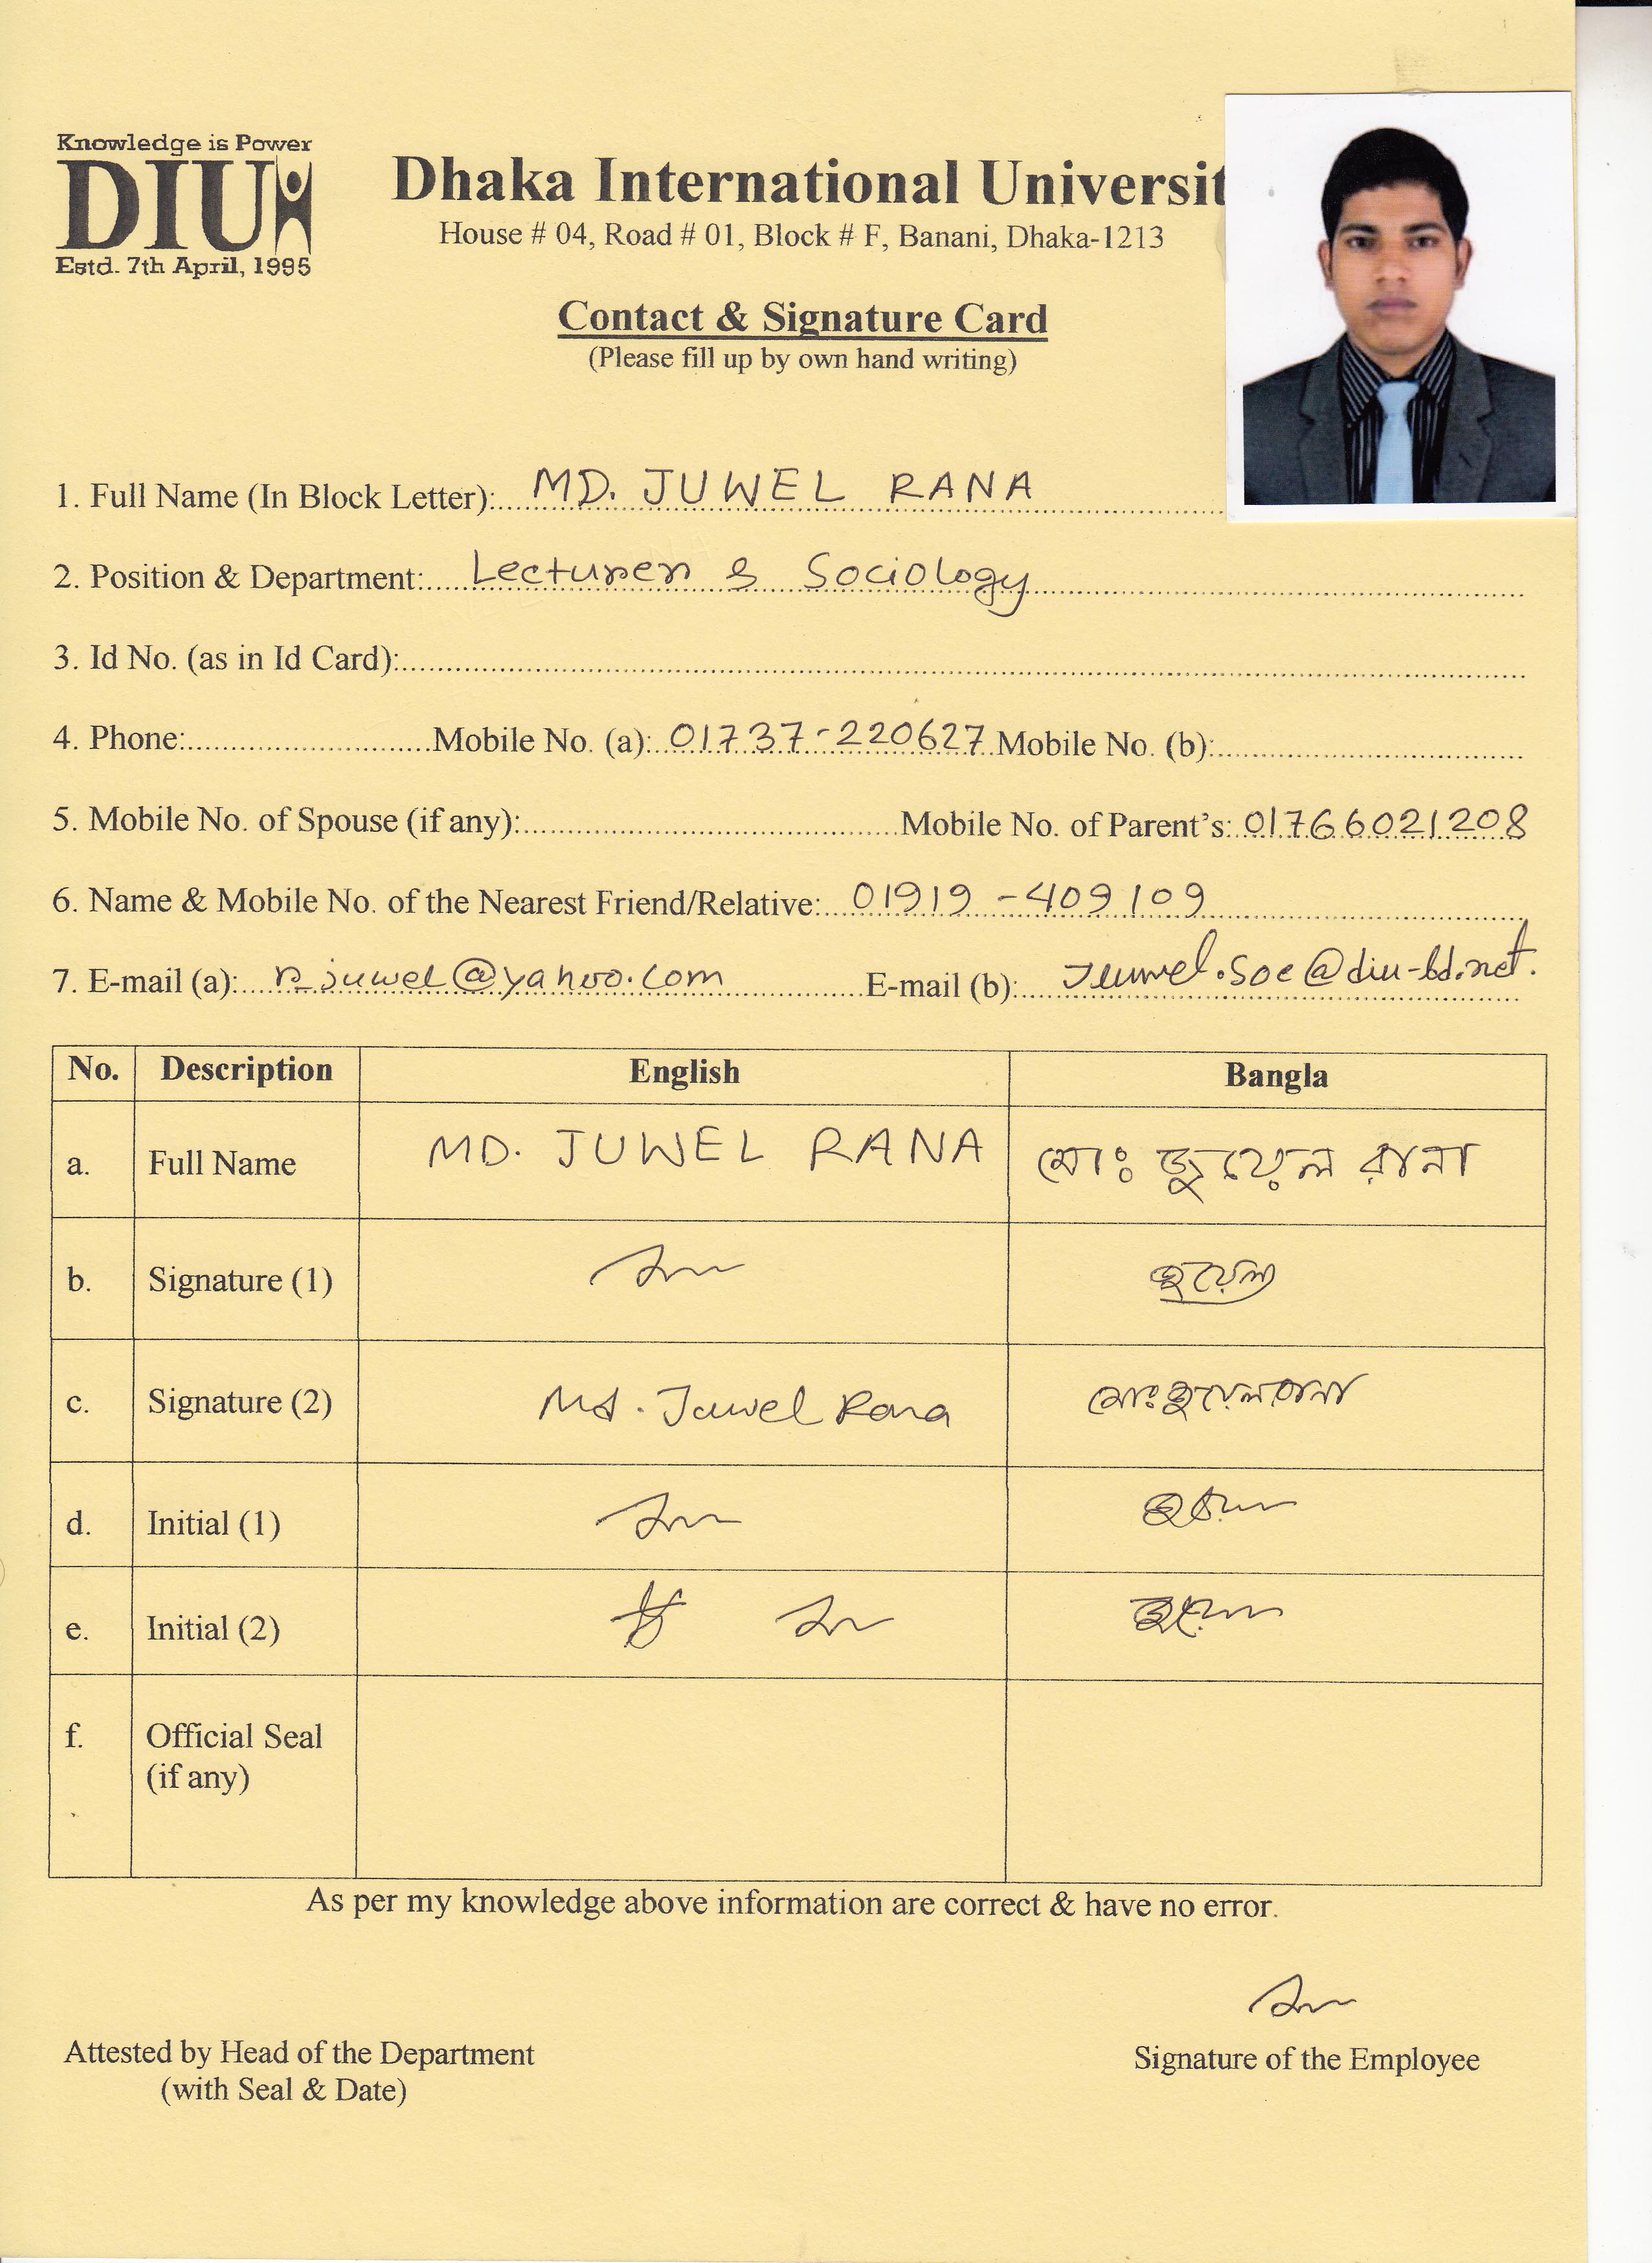 Knowledge is Power
DIU
Estd. 7th April, 1995
Dhaka International Universit
House # 04, Road # 01, Block # F, Banani, Dhaka-1213
Contact & Signature Card
(Please fill up by own hand writing)
1. Full Name (In Block Letter): MD. JUWEL RANA
2. Position & Department: Lecturer & Sociology
3. Id No. (as in Id Card):
4. Phone: Mobile No. (a): 01737-220627 Mobile No. (b):
5. Mobile No. of Spouse (if any): Mobile No. of Parent's: 01766021208
6. Name & Mobile No. of the Nearest Friend/Relative: 01919-409109
7. E-mail (a): r_juwel@yahoo.com E-mail (b): Juwel.soc@diu-bd.net.
No. Description English Bangla
a. Full Name MD. JUWEL RANA মোঃ জুয়েল রানা
b. Signature (1) জুয়েল
c. Signature (2) Md. Juwel Rana মোঃ জুয়েল রানা
d. Initial (1)
e. Initial (2)
f. Official Seal
(if any)
As per my knowledge above information are correct & have no error.
Attested by Head of the Department
(with Seal & Date)
Signature of the Employee